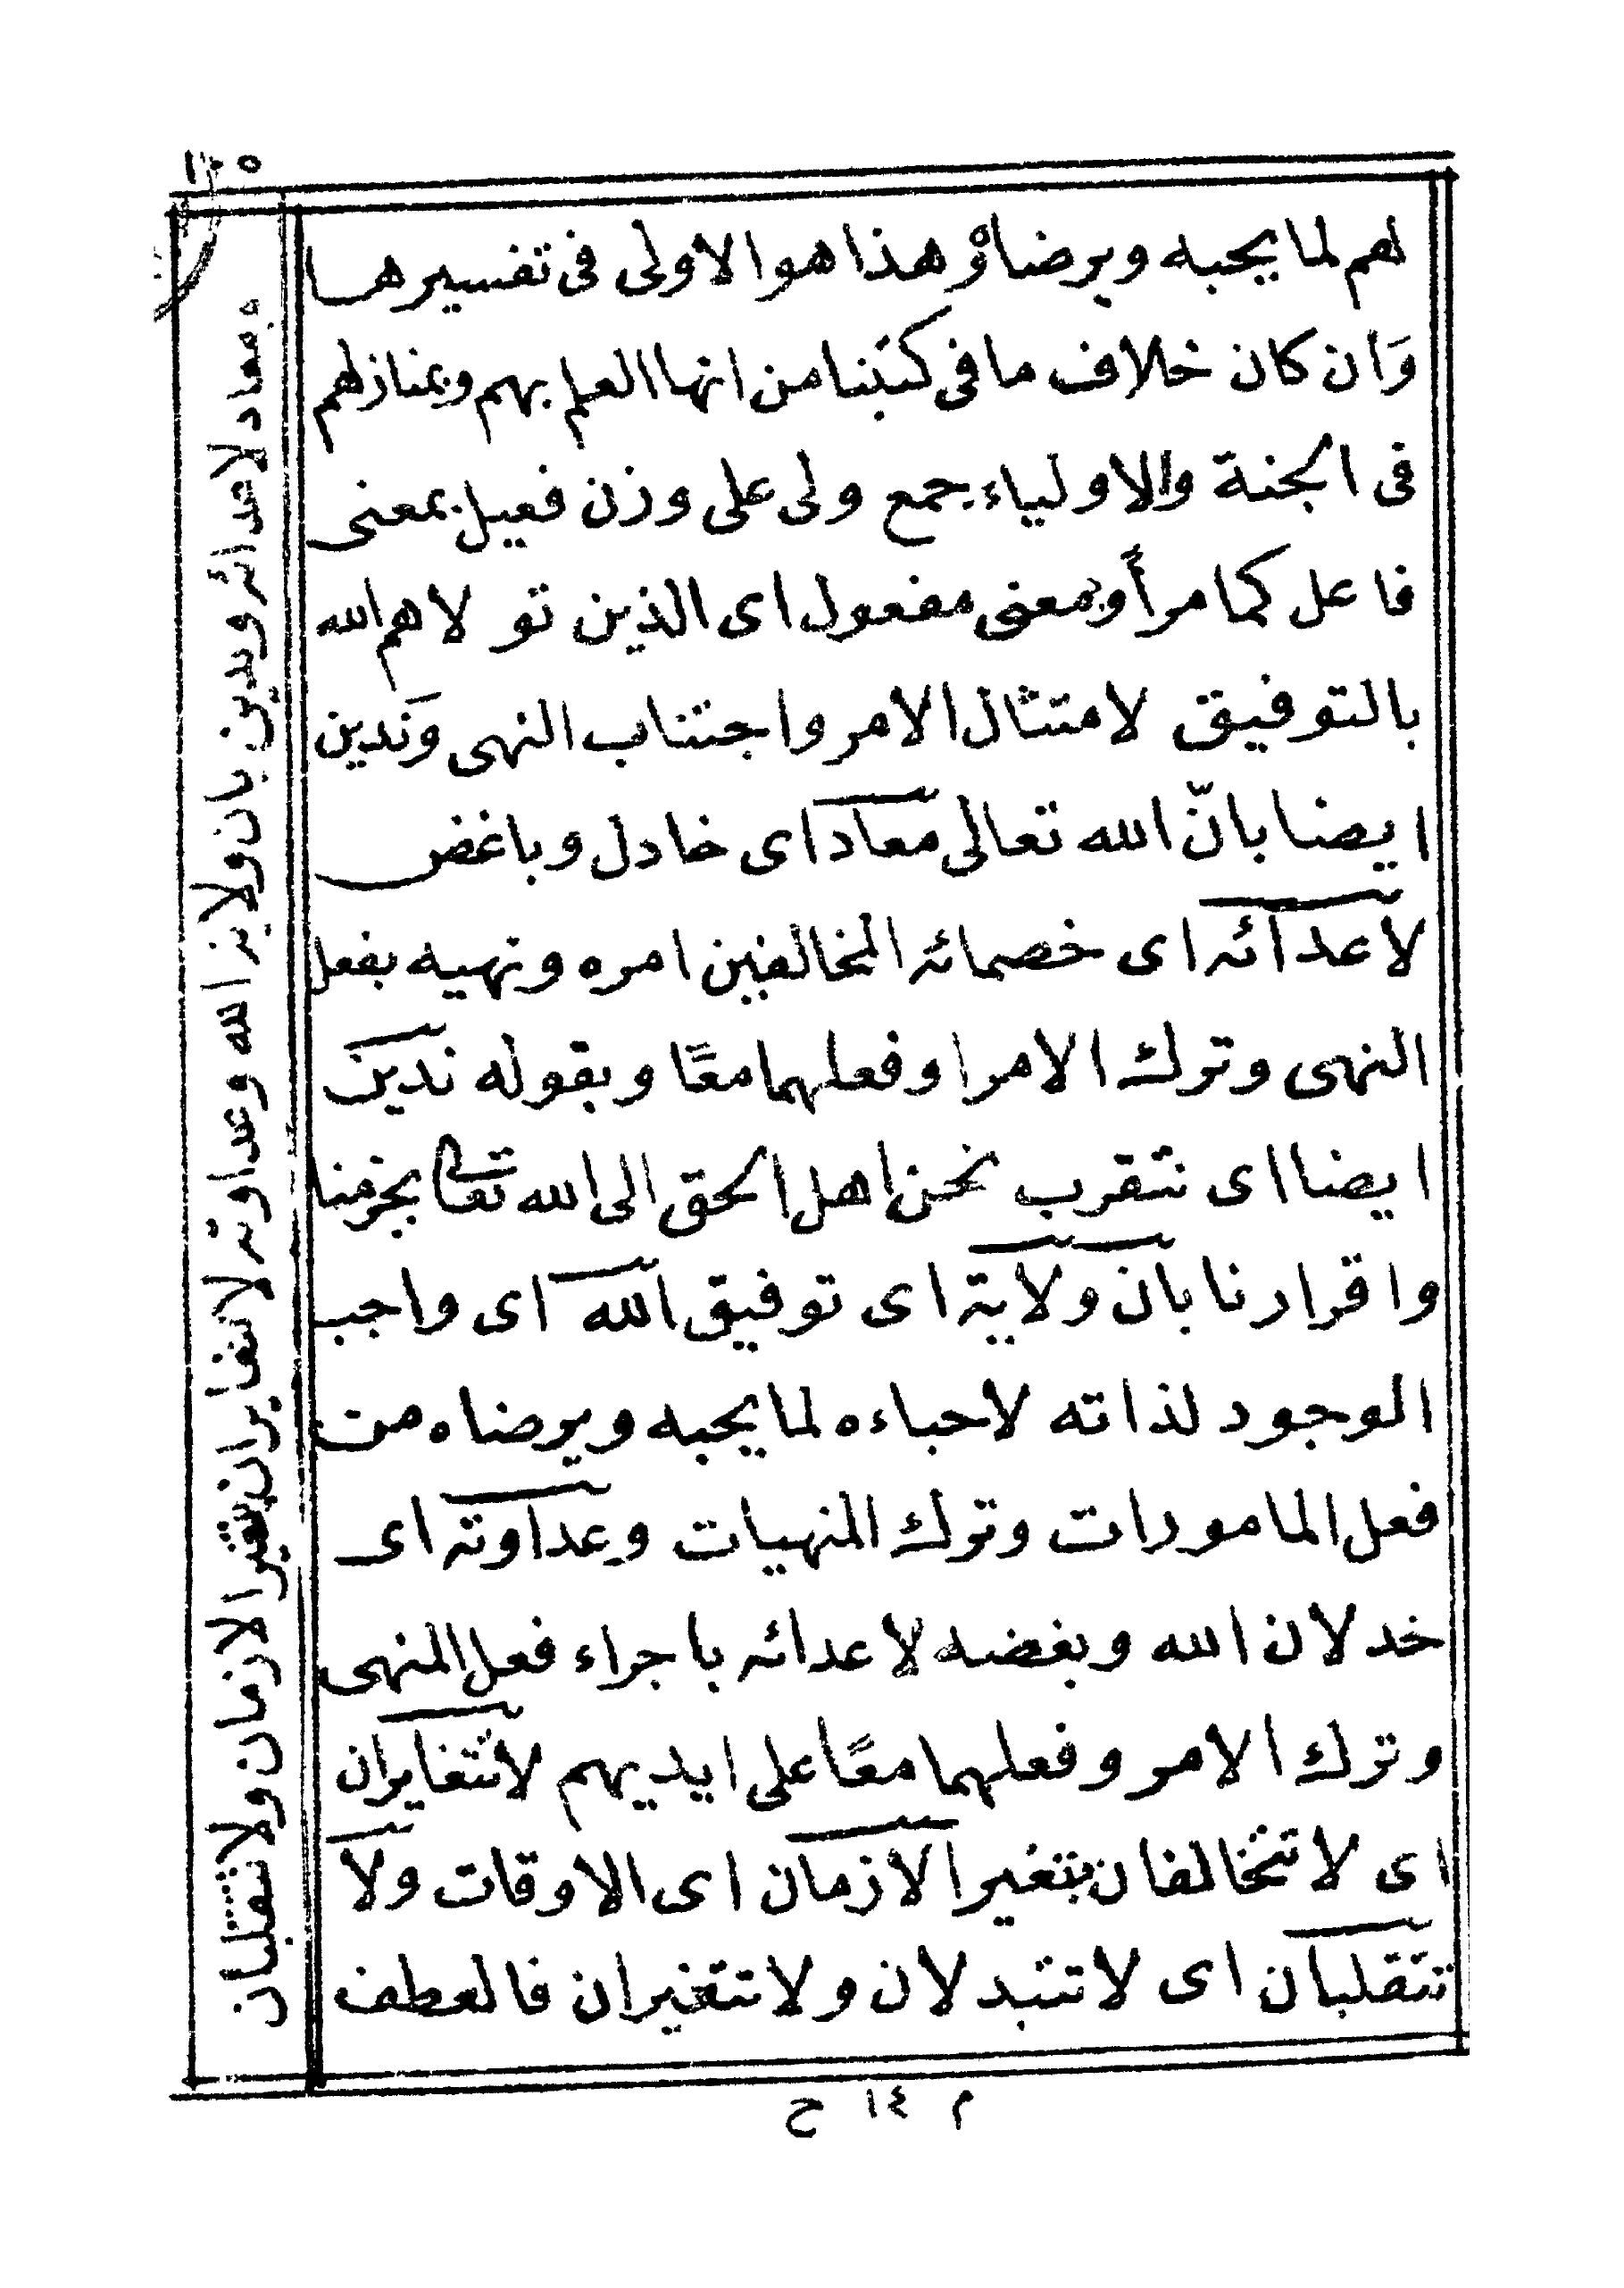 ١٠٥
لهم لما يحبه ويرضاؤ هذا هو الاولى فى تفسيرها
وَان كان خلاف ما فى كتبنا من انها العلم بهم وبمنازلهم
فى الجنة والاولياء جمع ولى على وزن فعيل بمعنى
فاعل كما مرأ وبمعنى مفعول اى الذين تو لاهم الله
بالتوفيق لامتثال الامر واجتناب النهى وَندين
ايضا بانّ الله تعالى معاد اى خادل وباغض
لاعدائه اى خصمائه المخالفين امره ونهيه بفعل
النهى وترك الامر او فعلهما معًا وبقوله ندين
ايضا اى نتقرب نحن اهل الحق الى الله تعا بجزمنا
واقرارنا بان ولاية اى توفيق الله اى واجب
الوجود لذاته لاحباءه لما يحبه ويرضاه من
فعل المامورات وترك المنهيات وعداوته اى
خدلان الله وبغضه لاعدائه باجراء فعل المنهى
وترك الامر وفعلهما معًا على ايديهم لاتتغايران
اى لا تتخالفان بتغير الازمان اى الاوقات ولا
تتقلبان اى لا تتبدلان ولا تتغيران فالعطف
معاد لاعدائه وندين بان ولاية الله وعداوته لا تتغايران بتغير الازمان ولا تتقلبان
م ١٤ ح